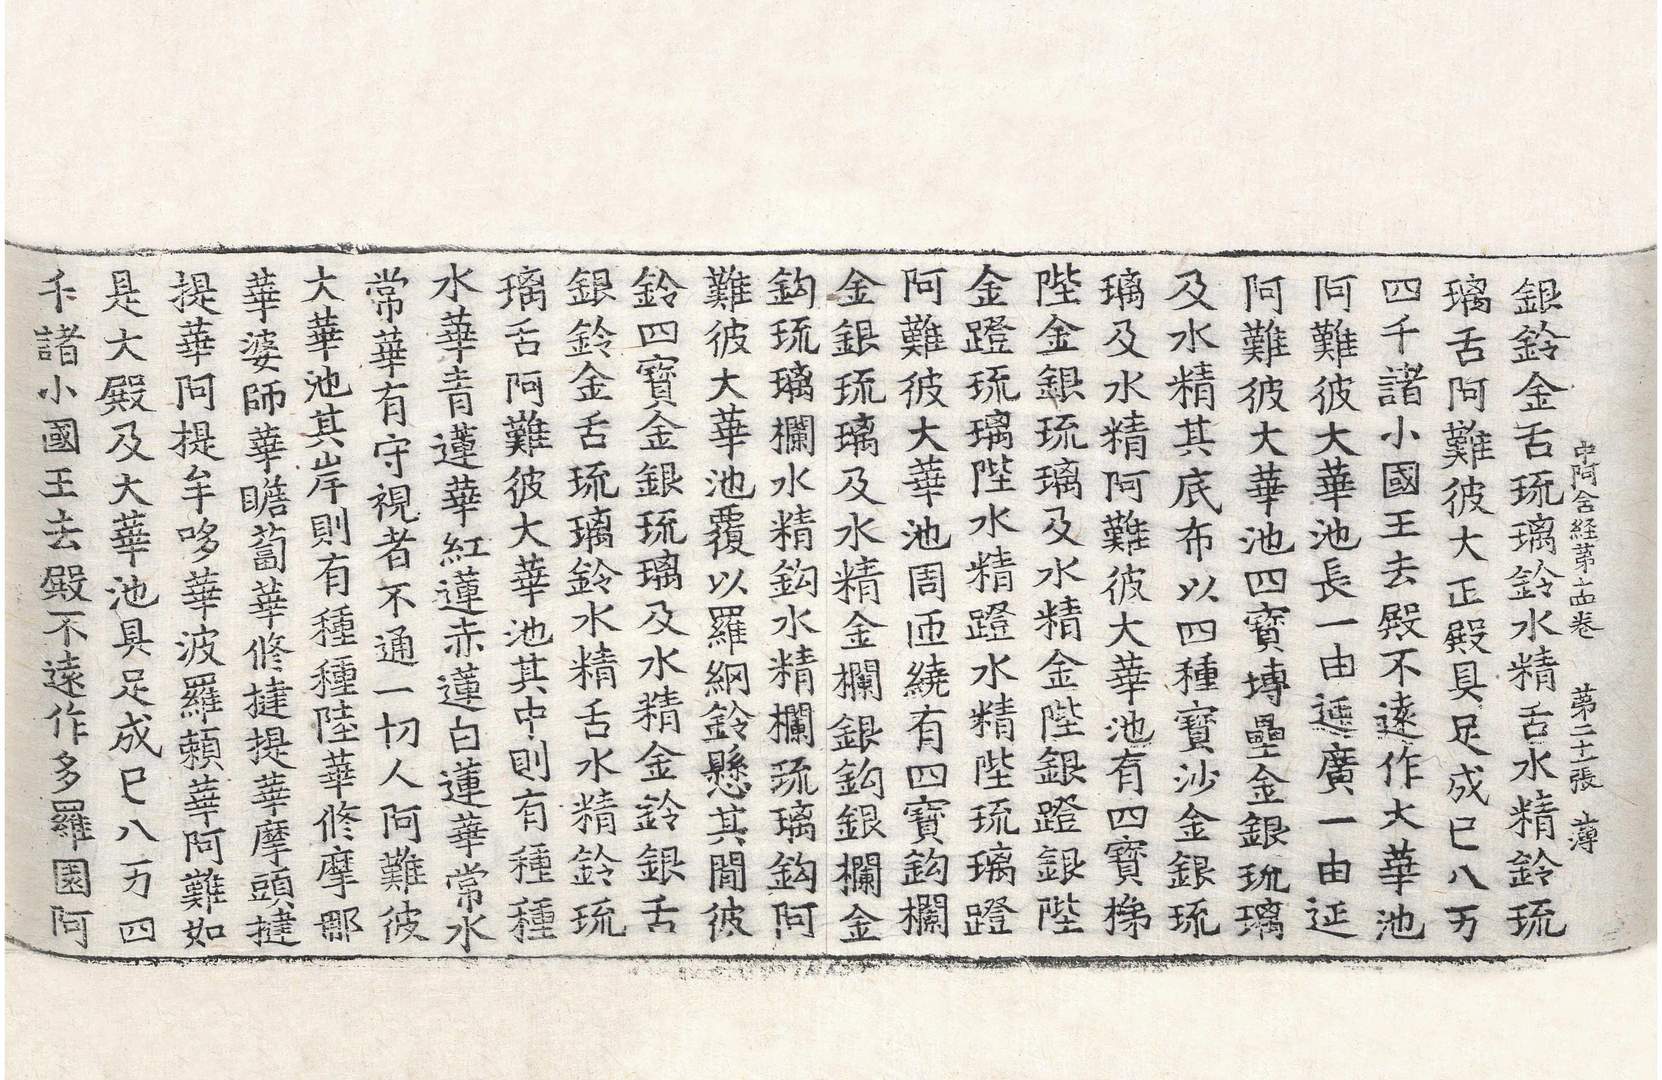 銀鈴金舌琉璃鈴水精舌水精鈴琉
中阿含経第十四卷 第二十張 薄
璃舌阿難彼大正殿具足成已八万
四千諸小國王去殿不遠作大華池
阿難彼大華池長一由延廣一由延
阿難彼大華池四寶塼壘金銀琉璃
及水精其底布以四種寶沙金銀琉
璃及水精阿難彼大華池有四寶梯
陛金銀琉璃及水精金陛銀蹬銀陛
金蹬琉璃陛水精蹬水精陛琉璃蹬
阿難彼大華池周迊繞有四寶鈎欄
金銀琉璃及水精金欄銀鈎銀欄金
鈎琉璃欄水精鈎水精欄琉璃鈎阿
難彼大華池覆以羅網鈴懸其間彼
鈴四寶金銀琉璃及水精金鈴銀舌
銀鈴金舌琉璃鈴水精舌水精鈴琉
璃舌阿難彼大華池其中則有種種
水華青蓮華紅蓮赤蓮白蓮華常水
常華有守視者不通一切人阿難彼
大華池其岸則有種種陸華修摩那
華婆師華瞻蔔華修揵提華摩頭揵
提華阿提牟哆華波羅賴華阿難如
是大殿及大華池具足成已八万四
千諸小國王去殿不遠作多羅園阿